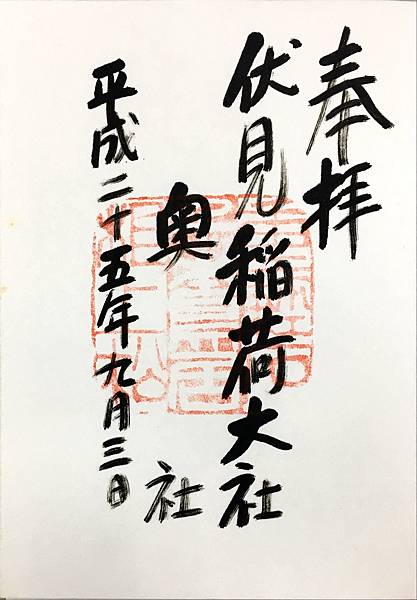 奉拝
伏見稲荷大社
奥社
平成二十五年九月三日